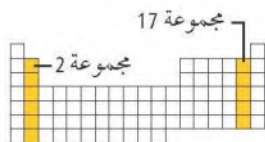 مجموعة 17
مجموعة 2